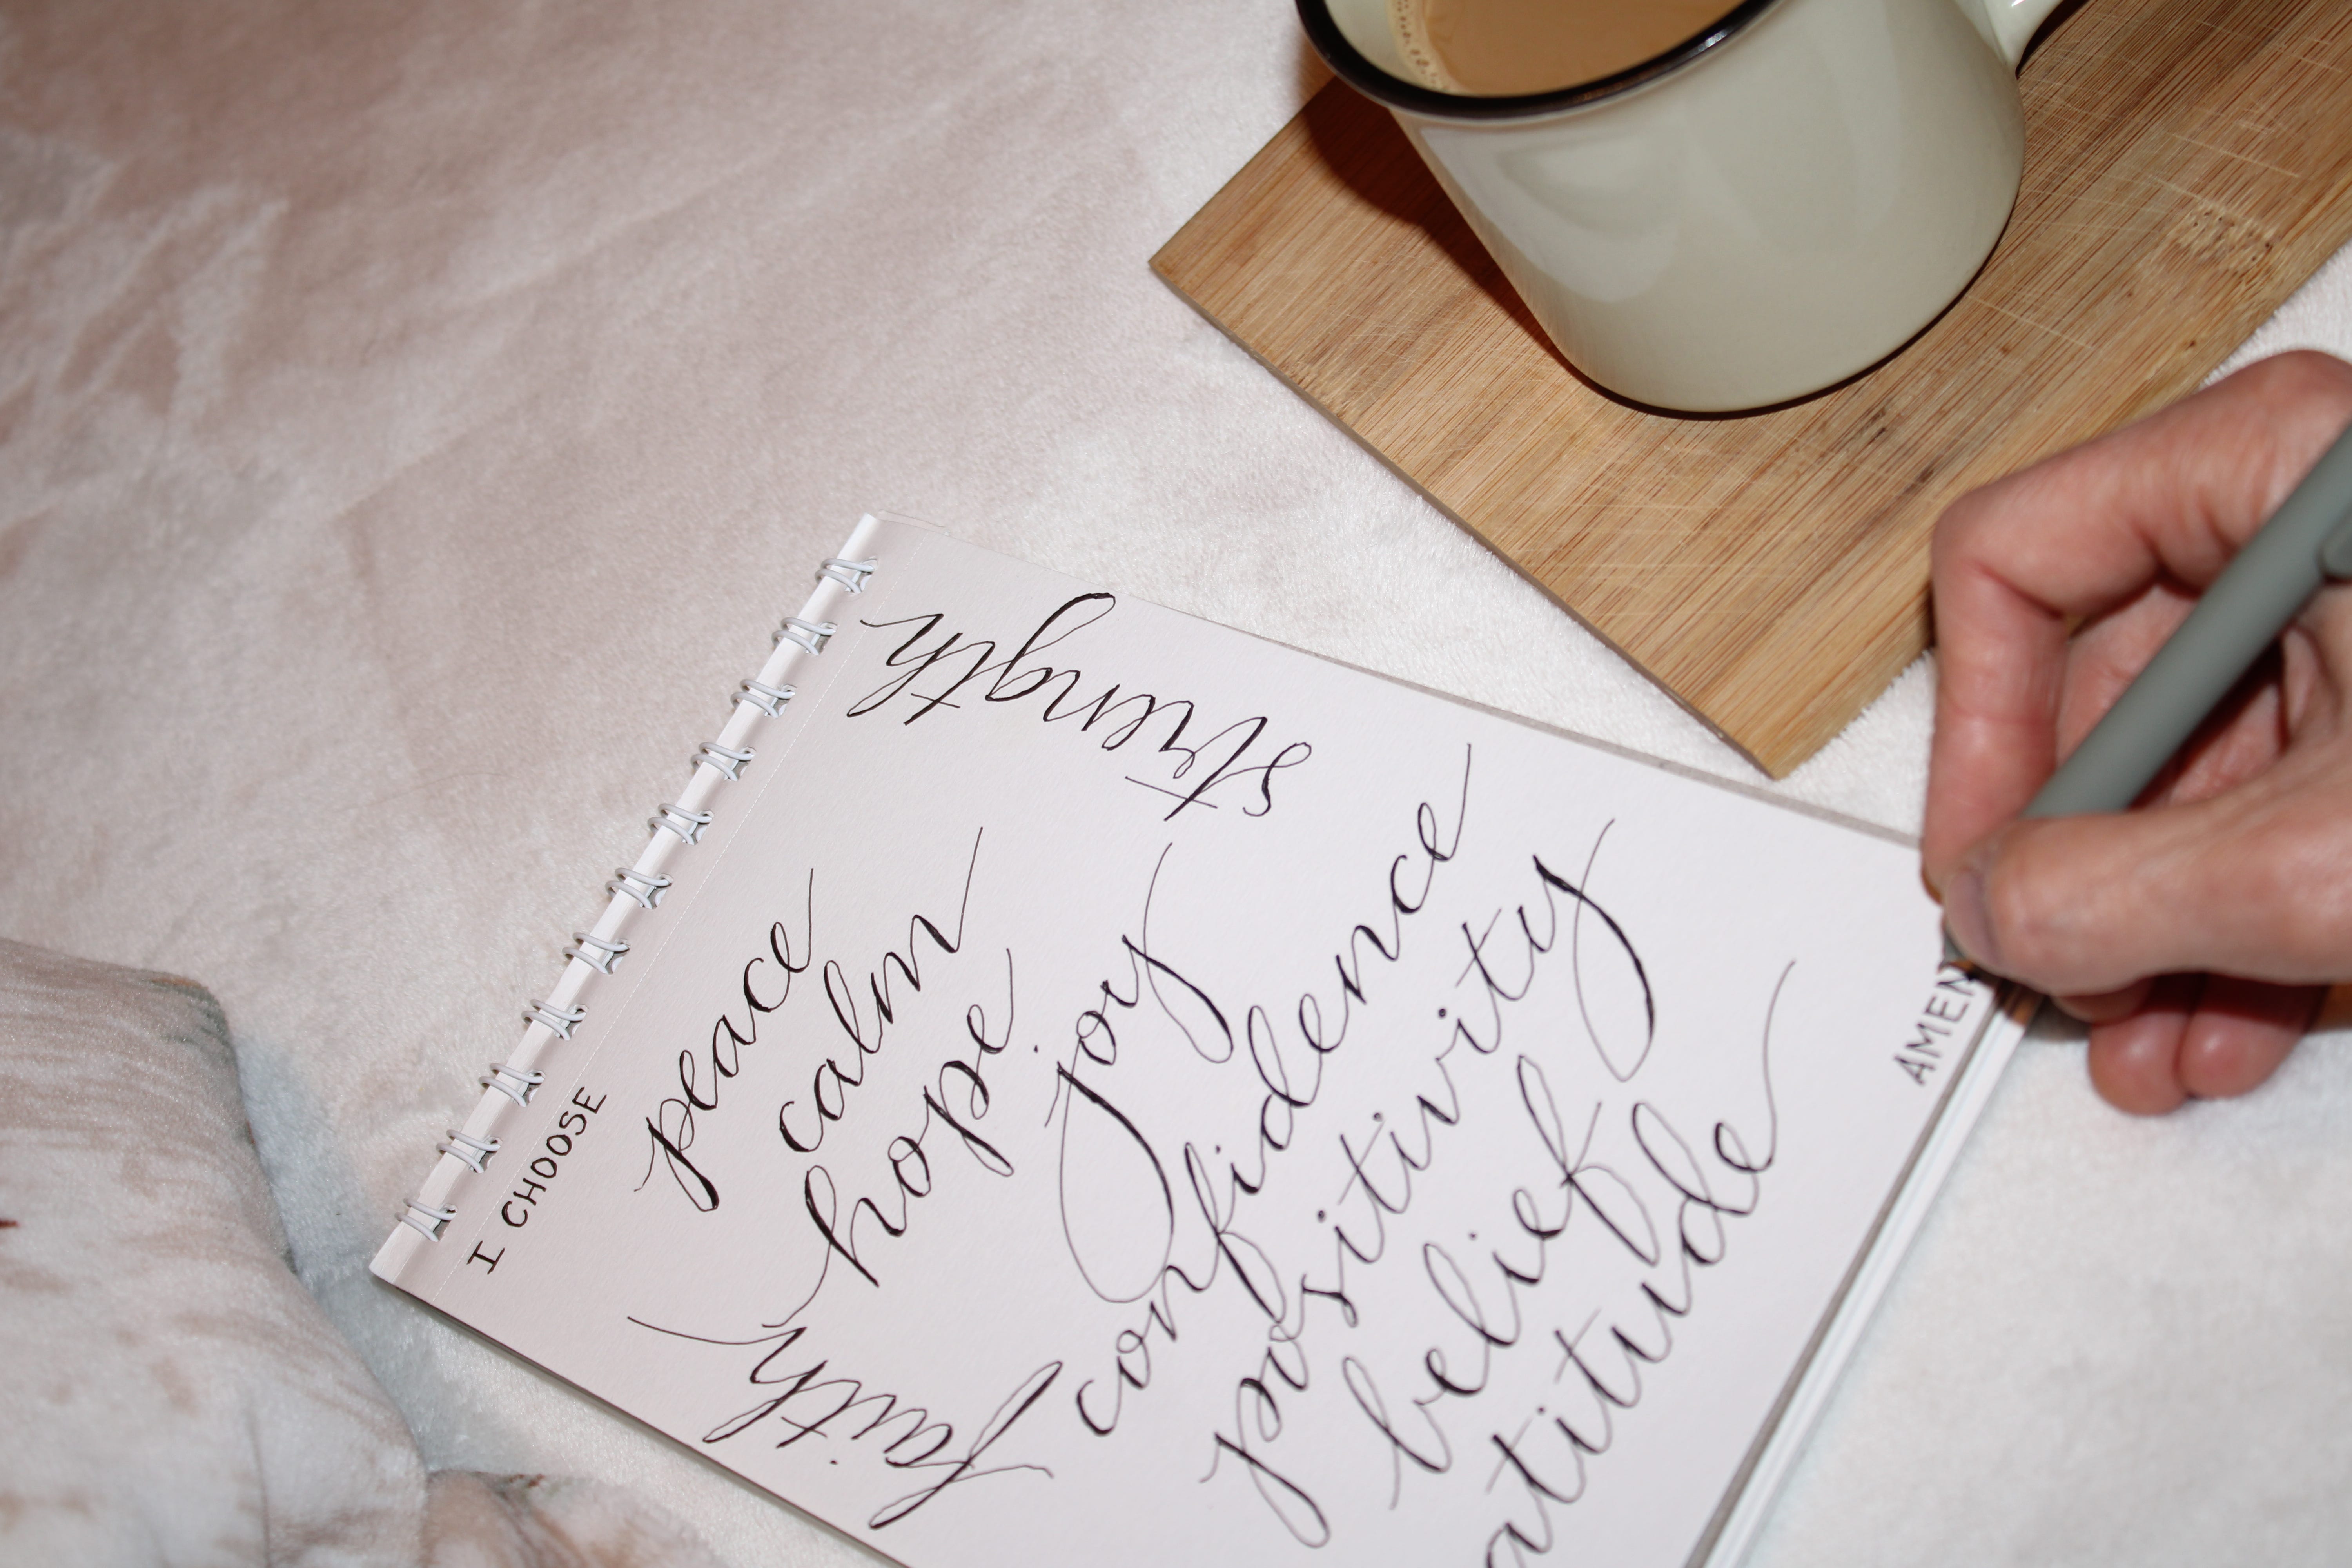 I CHOOSE
peace
calm
hope
faith
strength
joy
confidence
positivity
belief
atitude
AMEN